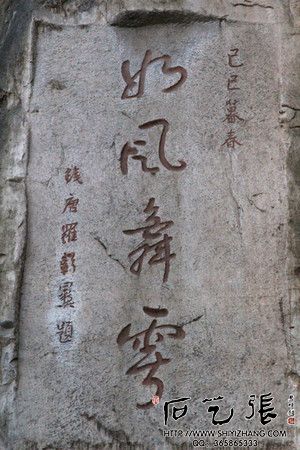 己巳暮春
如風舞雩
錢唐羅題
石艺張
HTTP://WWW.SHIYIZHANG.COM
QQ: 365865333